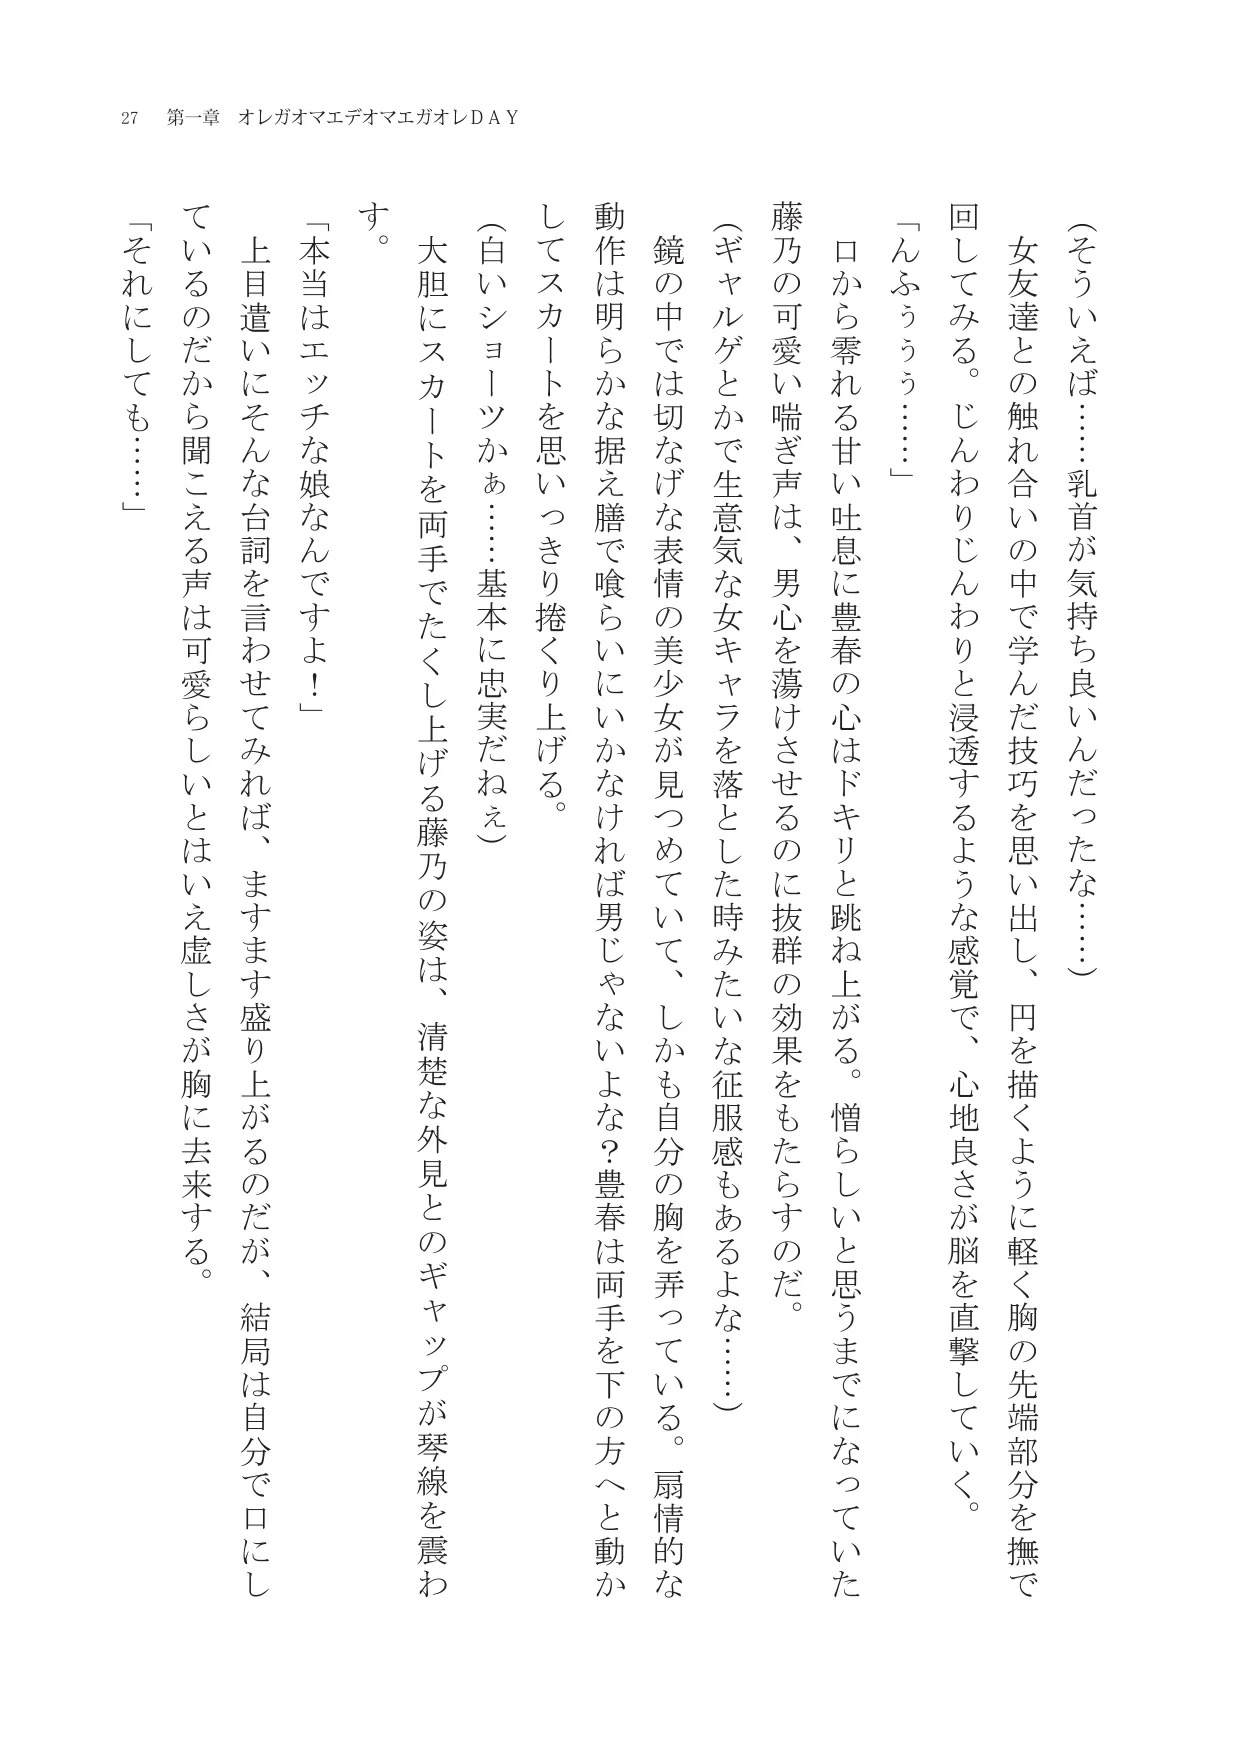 27 第一章 オレガオマエデオマエガオレDAY
（そういえば……乳首が気持ち良いんだったな……）
女友達との触れ合いの中で学んだ技巧を思い出し、円を描くように軽く胸の先端部分を撫で
回してみる。じんわりじんわりと浸透するような感覚で、心地良さが脳を直撃していく。
「んふぅうう……」
口から零れる甘い吐息に豊春の心はドキリと跳ね上がる。憎らしいと思うまでになっていた
藤乃の可愛い喘ぎ声は、男心を蕩けさせるのに抜群の効果をもたらすのだ。
（ギャルゲとかで生意気な女キャラを落とした時みたいな征服感もあるよな……）
鏡の中では切なげな表情の美少女が見つめていて、しかも自分の胸を弄っている。扇情的な
動作は明らかな据え膳で喰らいにいかなければ男じゃないよな？豊春は両手を下の方へと動か
してスカートを思いっきり捲くり上げる。
（白いショーツかぁ……基本に忠実だねぇ）
大胆にスカートを両手でたくし上げる藤乃の姿は、清楚な外見とのギャップが琴線を震わ
す。
「本当はエッチな娘なんですよ！」
上目遣いにそんな台詞を言わせてみれば、ますます盛り上がるのだが、結局は自分で口にし
ているのだから聞こえる声は可愛らしいとはいえ虚しさが胸に去来する。
「それにしても……」